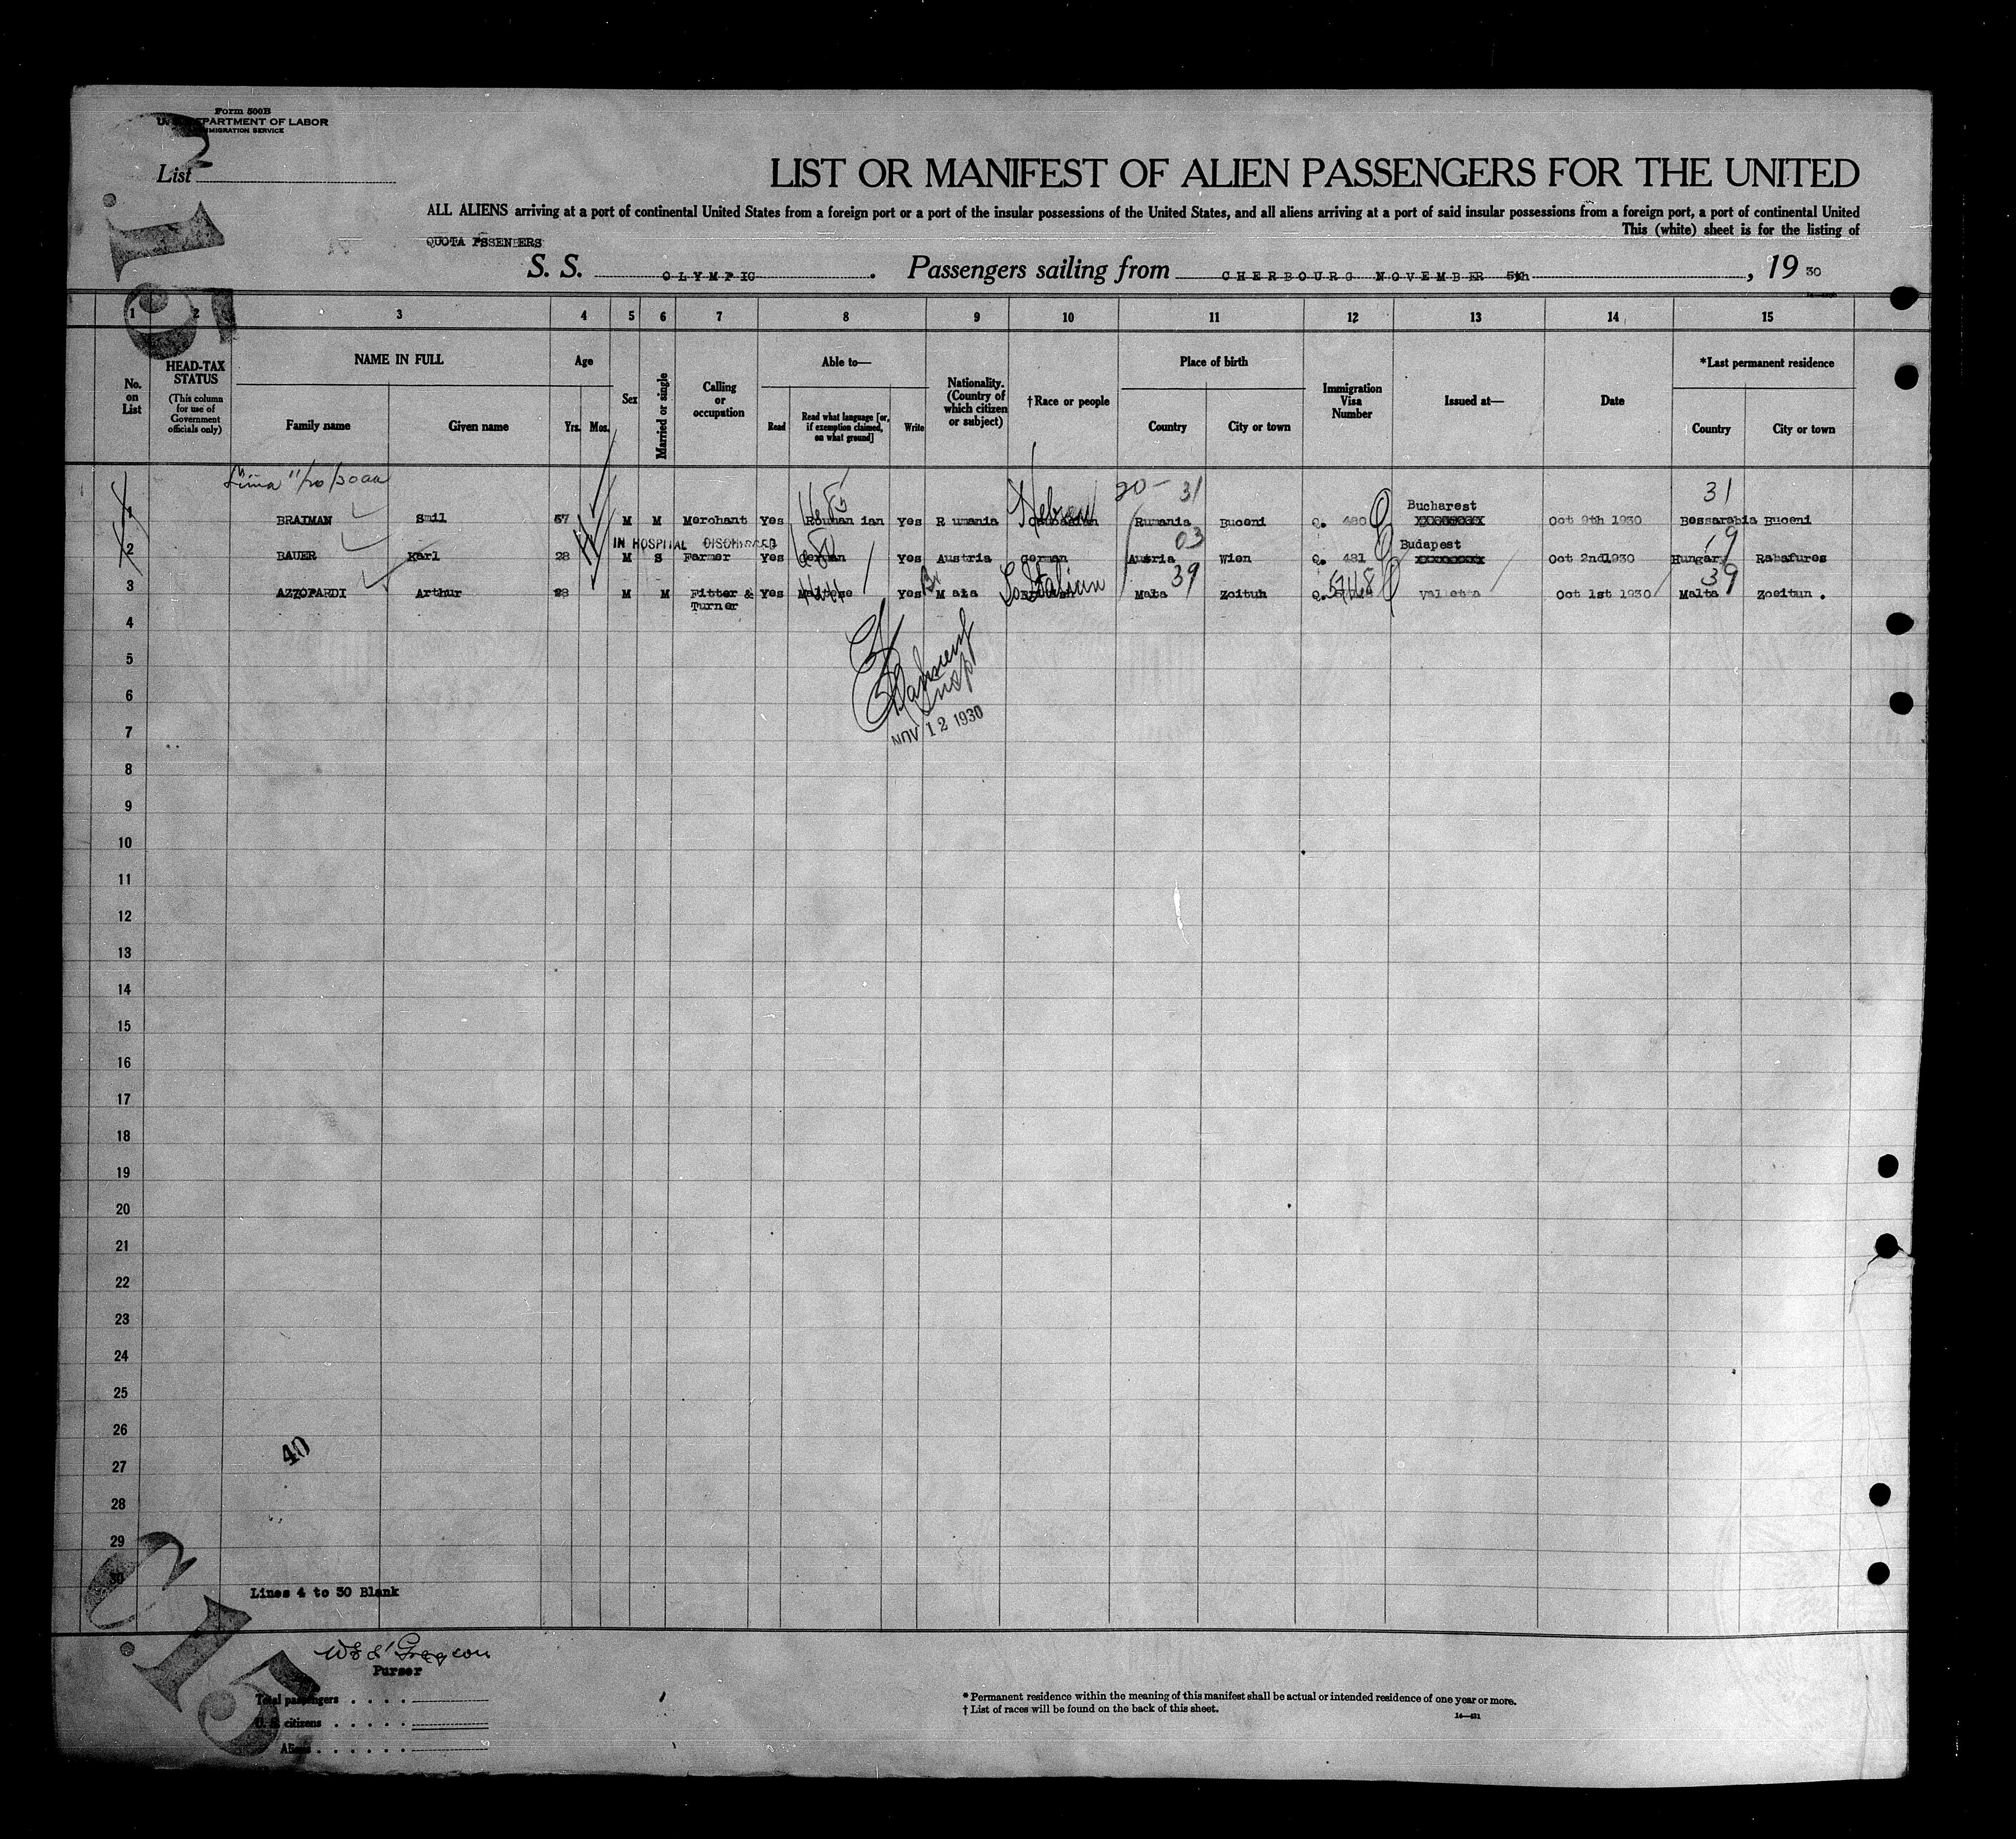 Form 500B
U. S. DEPARTMENT OF LABOR
IMMIGRATION SERVICE
List
LIST OR MANIFEST OF ALIEN PASSENGERS FOR THE UNITED
ALL ALIENS arriving at a port of continental United States from a foreign port or a port of the insular possessions of the United States, and all aliens arriving at a port of said insular possessions from a foreign port, a port of continental United
This (white) sheet is for the listing of
QUOTA PSSENGERS
S. S. OLYMPIC. Passengers sailing from CHERBOURG NOVEMBER 5th, 1930
1 2 3 4 5 6 7 8 9 10 11 12 13 14 15
No. on List
HEAD-TAX STATUS
(This column for use of Government officials only)
NAME IN FULL
Family name Given name
Age
Yrs. Mos.
Sex
Married or single
Calling or occupation
Able to—
Read Read what language [or, if exemption claimed, on what ground] Write
Nationality. (Country of which citizen or subject)
†Race or people
Place of birth
Country City or town
Immigration Visa Number
Issued at—
Date
*Last permanent residence
Country City or town
20- 31 31
Bucharest
1 BRAIMAN Smil 57 M M Merchant Yes Rouman ian Yes R umania Hebrew Rumania Buceni Q. 480 XXXXXXXXX Oct 9th 1930 Bessarabia Buceni
IN HOSPITAL DISCHARGED 03 Budapest 19
2 BAUER Karl 28 M S Farmer Yes German Yes Austria German Austria Wien Q. 481 XXXXXXXXX Oct 2nd1930 Hungary Rabafures
39 39
3 AZZOPARDI Arthur 28 M M Fitter & Yes Maltese Yes Br M ata So Italian Mata Zeitun Q. 5748 Valletta Oct 1st 1930 Malta Zoeitun .
Turner
4
5
6
Insp
NOV 12 1930
7
8
9
10
11
12
13
14
15
16
17
18
19
20
21
22
23
24
25
26
40
27
28
29
30
Lines 4 to 30 Blank
Purser
Total passengers
U. S. citizens
Aliens
* Permanent residence within the meaning of this manifest shall be actual or intended residence of one year or more.
† List of races will be found on the back of this sheet.
14—421